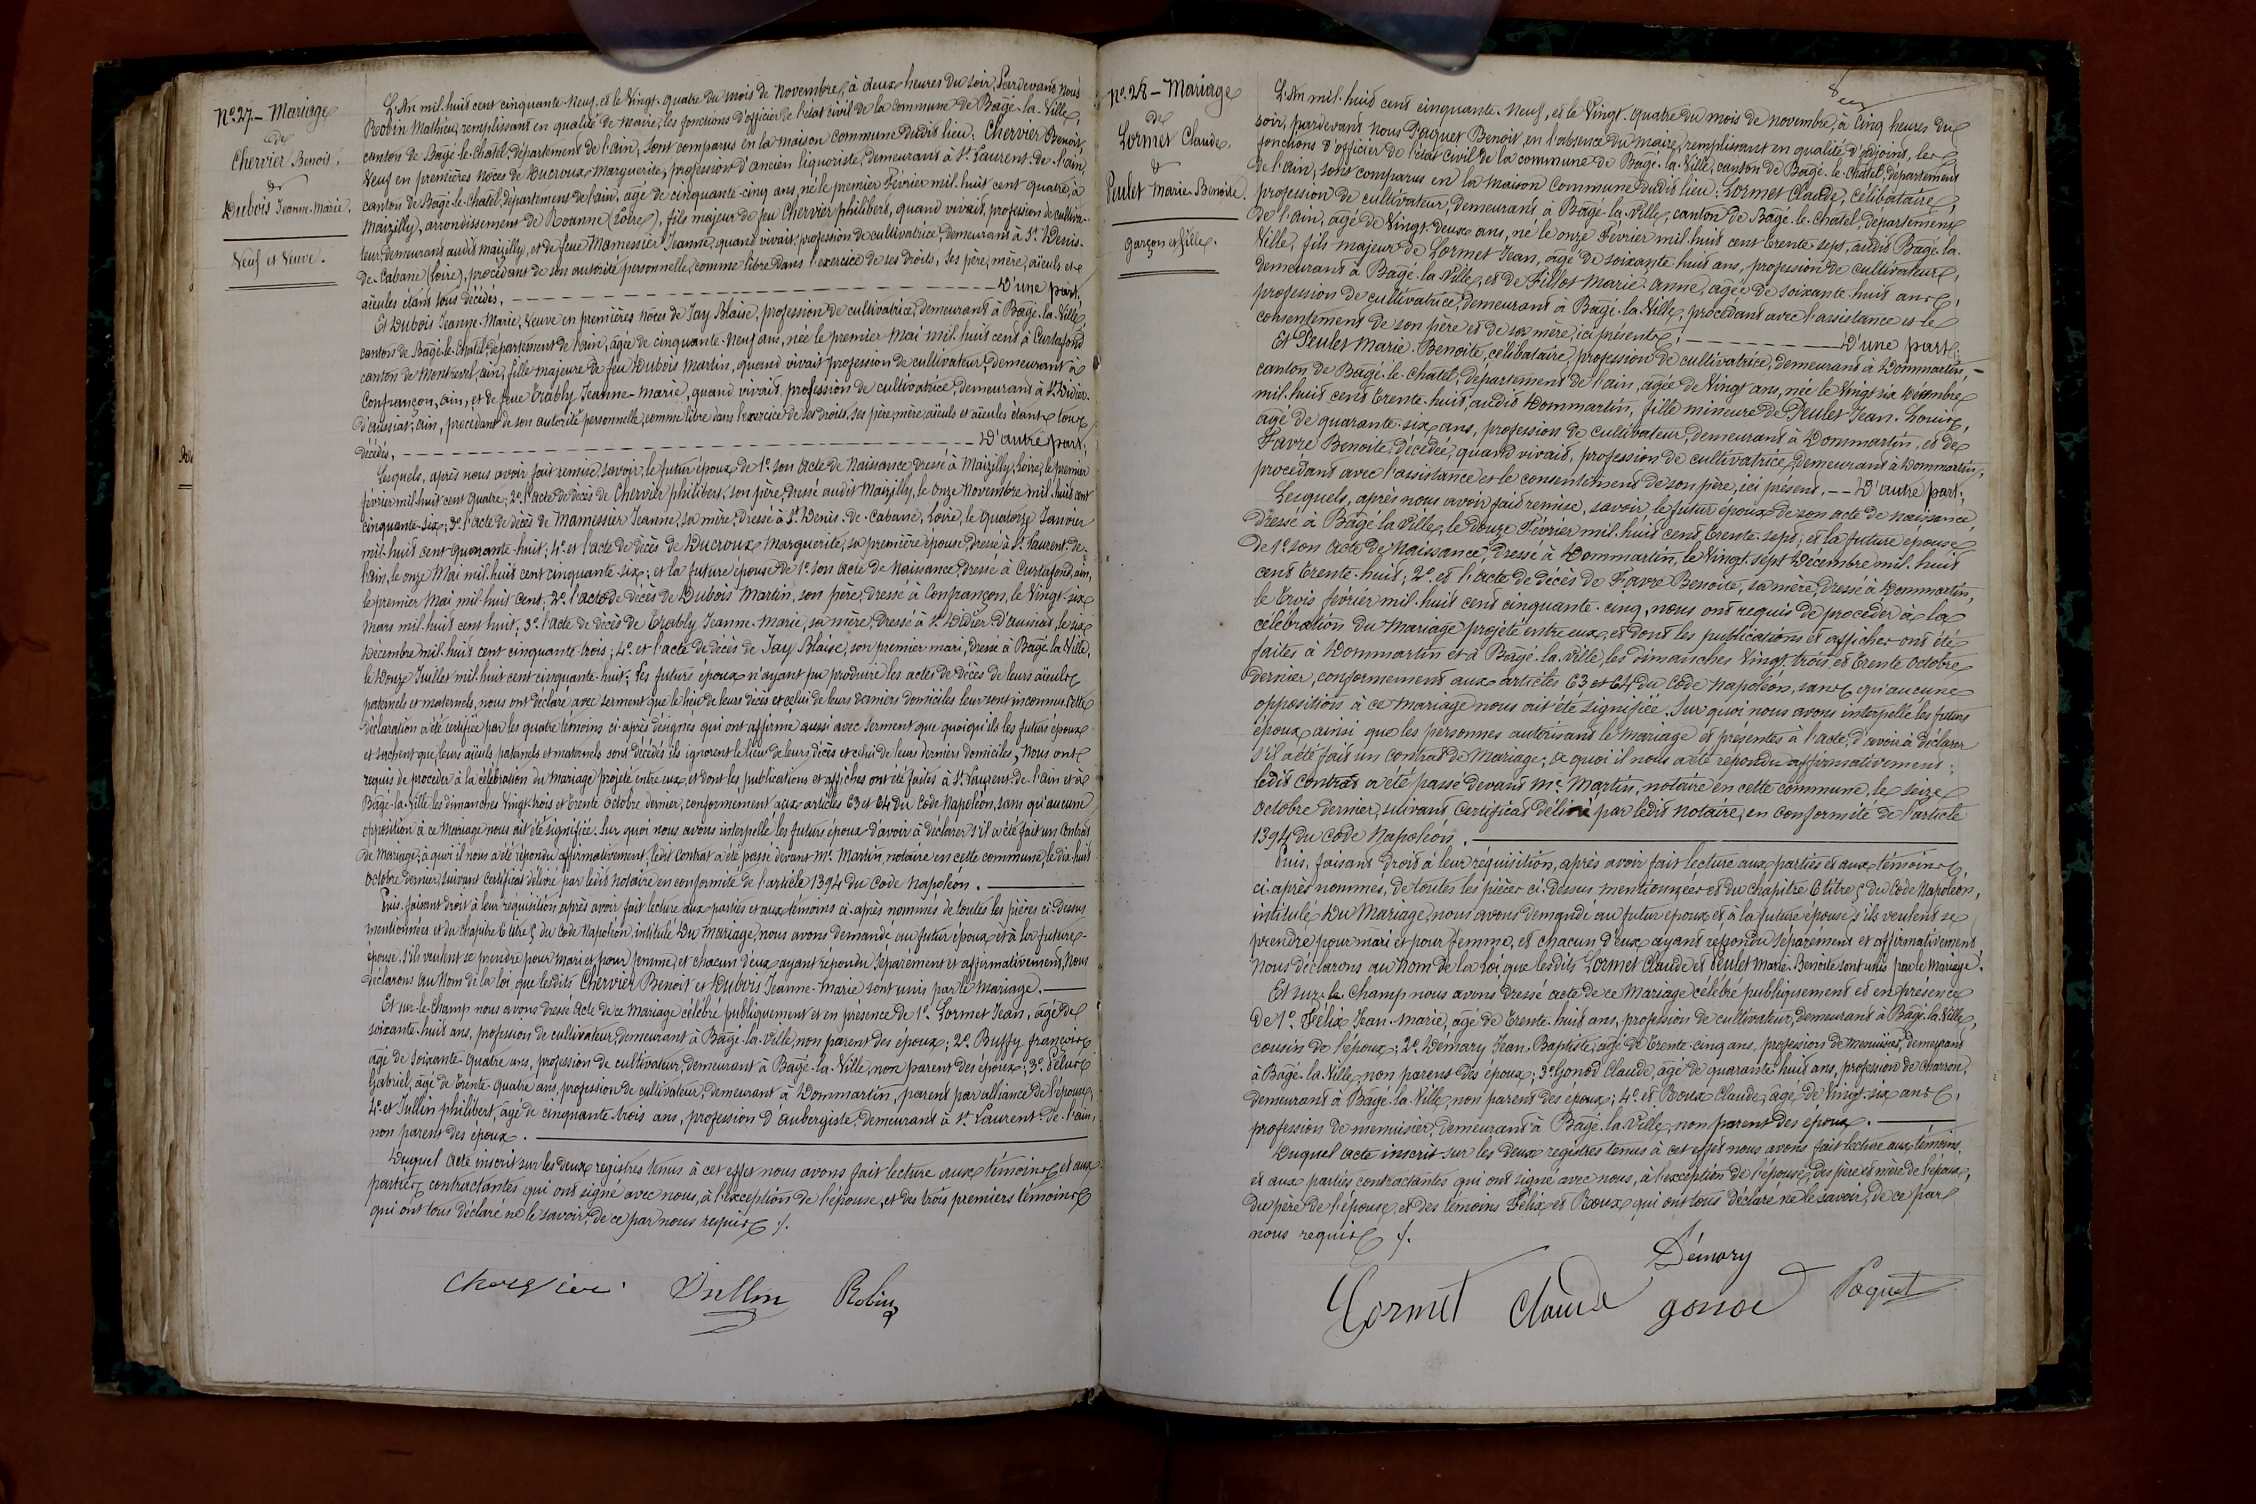 N.o 27 - Mariage
de
Chervier Benoit.
&
Dubois Jeanne-Marie.
Veuf et Veuve.
L'An mil-huit cent cinquante-neuf, et le Vingt-quatre du mois de Novembre, à deux heures du soir, Pardevant Nous
Robin Mathieu, remplissant en qualité de Maire, les fonctions d'officier de l'état civil de la commune de Bagé-la-Ville,
canton de Bagé-le-Chatel, département de l'ain, sont comparus en la maison commune dudit lieu: Chervier Benoit,
Veuf en premières Noces de Ducroux Marguerite, profession d'ancien liquoriste, demeurant à St. Laurent-de-l'ain,
canton de Bagé-le-Chatel, département de l'ain, âgé de cinquante-cinq ans, né le premier Février mil-huit cent quatre, à
Maizilly, arrondissement de Roanne (Loire), fils majeur de feu Chervier philibert, quand vivait, profession de cultiva-
teur, demeurant audit Maizilly, et de feue Mamessier Jeanne, quand vivait, profession de cultivatrice, demeurant à St. Denis-
de-Cabane (Loire), procédant de son autorité personnelle, comme libre dans l'exercice de ses droits, ses père, mère, aïeuls et
aïeules étant tous décédés, D'une part,
Et Dubois Jeanne-Marie, Veuve en premières noces de Jay Blaise, profession de cultivatrice, demeurant à Bagé-la-Ville,
canton de Bagé-le-Chatel, département de l'ain, âgée de cinquante-Neuf ans, née le premier Mai mil-huit cent à Curtafond
canton de Montrevel, ain, fille majeure de feu Dubois Martin, quand vivait profession de cultivateur, demeurant à
Confrançon, ain, et de feue Erably Jeanne-Marie, quand vivait, profession de cultivatrice, demeurant à St. Didier-
d'aussiat, ain, procédant de son autorité personnelle, comme libre dans l'exercice de ses droits, ses père, mère, aïeuls et aïeules étant tous
décédés, D'autre part.
Lesquels, après nous avoir fait remise, savoir, le futur époux de 1.o son Acte de Naissance dressé à Maizilly, Loire, le premier
février mil-huit cent quatre; 2.o l'acte de décès de Chervier philibert, son père, dressé audit Maizilly, le onze Novembre mil-huit cent
cinquante-six; 3.o l'acte de décès de Mamessier Jeanne, sa mère, dressé à St. Denis-de-Cabane, Loire, le quatorze Janvier
mil-huit cent quarante-huit; 4.o et l'acte de décès de Ducroux Marguerite, sa première épouse, dressé à St. Laurent-de-
l'ain, le onze Mai mil-huit cent cinquante-six; et la future épouse de 1.o son acte de Naissance, dressé à Curtafond, ain,
le premier Mai mil-huit cent; 2.o l'acte de décès de Dubois Martin, son père, dressé à Confrançon, le Vingt-six
Mars mil-huit cent huit; 3.o l'acte de décès de Erably Jeanne-Marie, sa mère, dressé à St. Didier-d'aussiat, le six
Décembre mil-huit cent cinquante-trois; 4.o et l'acte de décès de Jay Blaise, son premier mari, dressé à Bagé-la-Ville,
le Douze Juillet mil-huit cent cinquante-huit; les futurs époux n'ayant pu produire les actes de décès de leurs aïeuls
paternels et maternels, nous ont déclaré avec serment que le lieu de leurs décès et celui de leurs derniers domiciles leur sont inconnus. Cette
déclaration a été certifiée par les quatre témoins ci-après désignés qui ont affirmé aussi avec serment que quoiqu'ils les futurs époux
et sachent que leurs aïeuls paternels et maternels sont décédés ils ignorent le lieu de leurs décès et celui de leurs derniers domiciles, Nous ont
requis de procéder à la célébration du mariage projeté entre eux et dont les publications et affiches ont été faites à St. Laurent-de-l'ain et à
Bagé-la-Ville les dimanches Vingt-trois et trente octobre dernier, conformément aux articles 63 et 64 du Code Napoléon, sans qu'aucune
opposition à ce Mariage nous ait été signifiée. Sur quoi nous avons interpellé les futurs époux d'avoir à déclarer s'il a été fait un Contrat
de Mariage; à quoi il nous a été répondu affirmativement; ledit contrat a été passé devant Me. Martin, notaire en cette commune, le dix-huit
octobre dernier, suivant certificat délivré par ledit notaire en conformité de l'article 1394 du Code Napoléon.
Puis, faisant droit à leur réquisition, après avoir fait lecture aux parties et aux témoins ci-après nommés de toutes les pièces ci-dessus
mentionnées et du chapitre 6 titre 5 du Code Napoléon, intitulé Du Mariage, nous avons demandé au futur époux et à la future-
épouse s'ils veulent se prendre pour mari et pour femme, et chacun d'eux ayant répondu séparément et affirmativement, Nous
déclarons au Nom de la loi que lesdits Chervier Benoit et Dubois Jeanne-Marie sont unis par le mariage.
Et sur-le-champ nous avons dressé Acte de ce Mariage célébré publiquement et en présence de 1.o Lormet Jean, âgé de
soixante-huit ans, profession de cultivateur, demeurant à Bagé-la-Ville, non parent des époux; 2.o Buffy françois
âgé de soixante-quatre ans, profession de cultivateur, demeurant à Bagé-la-Ville, non parent des époux; 3.o Pelus
Gabriel, âgé de trente-quatre ans, profession de cultivateur, demeurant à Dommartin, parent par alliance de l'épouse;
4.o et Jullin philibert, âgé de cinquante-trois ans, profession d'aubergiste, demeurant à St. Laurent-de-l'ain,
non parent des époux.
Duquel acte inscrit sur les deux registres tenus à cet effet nous avons fait lecture aux témoins et aux
parties contractantes qui ont signé avec nous, à l'exception de l'épouse, et des trois premiers témoins
qui ont tous déclaré ne le savoir, de ce par nous requis ./.
Chervier Jullin Robin
N.o 28 - Mariage
de
Lormet Claude
&
Peulet Marie-Benoite.
garçon et fille.
L'An mil-huit cent cinquante-Neuf, et le Vingt-Quatre du mois de novembre, à Cinq heures du
soir, pardevant Nous Paquet Benoit, en l'absence du Maire, remplissant en qualité d'adjoint, les
fonctions d'officier de l'état civil de la commune de Bagé-la-Ville, canton de Bagé-le-Chatel, département
de l'ain, sont comparus en la Maison Commune dudit lieu: Lormet Claude, célibataire,
profession de cultivateur, demeurant à Bagé-la-Ville, canton de Bagé-le-Chatel, département
de l'ain, âgé de Vingt-Deux ans, né le onze Février mil-huit cent trente-sept, audit Bagé-la-
Ville, fils majeur de Lormet Jean, âgé de soixante-huit ans, profession de cultivateur,
demeurant à Bagé-la-Ville, et de Fillot Marie-Anne, âgée de soixante-huit ans,
profession de cultivatrice, demeurant à Bagé-la-Ville, procédant avec l'assistance et le
consentement de son père et de sa mère, ici présents, D'une part;
Et Peulet Marie-Benoite, célibataire, profession de cultivatrice, demeurant à Dommartin,
canton de Bagé-le-Chatel, département de l'ain, âgée de Vingt ans, née le Vingt-six Décembre
mil-huit cent trente-huit, audit Dommartin, fille mineure de Peulet Jean-Louis,
âgé de quarante-six ans, profession de cultivateur, demeurant à Dommartin, et de
Favre Benoite, décédée, quand vivait, profession de cultivatrice, demeurant à Dommartin,
procédant avec l'assistance et le consentement de son père, ici présent, D'autre part;
Lesquels, après nous avoir fait remise, savoir, le futur époux de son acte de naissance,
dressé à Bagé-la-Ville, le douze Février mil-huit cent trente-sept; et la future épouse
de 1.o son acte de Naissance, dressé à Dommartin, le Vingt-sept Décembre mil-huit
cent trente-huit; 2.o et l'acte de décès de Favre Benoite, sa mère, dressé à Dommartin,
le trois février mil-huit cent cinquante-cinq, nous ont requis de procéder à la
célébration du Mariage projeté entre eux, et dont les publications et affiches ont été
faites à Dommartin et à Bagé-la-Ville, les dimanches Vingt-trois et trente octobre
dernier, conformément aux articles 63 et 64 du Code Napoléon, sans qu'aucune
opposition à ce mariage nous ait été signifiée. Sur quoi nous avons interpellé les futurs
époux ainsi que les personnes autorisant le Mariage et présentes à l'acte, d'avoir à déclarer
s'il a été fait un contrat de Mariage; à quoi il nous a été répondu affirmativement;
ledit contrat a été passé devant Me. Martin, notaire en cette commune, le seize
octobre dernier, suivant certificat délivré par ledit notaire, en conformité de l'article
1394 du Code Napoléon.
Puis, faisant droit à leur réquisition, après avoir fait lecture aux parties et aux témoins,
ci-après nommés, de toutes les pièces ci-dessus mentionnées et du chapitre 6 titre 5 du Code Napoléon,
intitulé Du Mariage, nous avons demandé au futur époux et à la future épouse s'ils veulent se
prendre pour mari et pour femme, et chacun d'eux ayant répondu séparément et affirmativement,
Nous déclarons au Nom de la Loi que lesdits Lormet Claude et Peulet Marie-Benoite sont unis par le Mariage.
Et sur-le-champ nous avons dressé acte de ce Mariage célébré publiquement et en présence
de 1.o Félix Jean-Marie, âgé de trente-huit ans, profession de cultivateur, demeurant à Bagé-la-Ville,
cousin de l'époux; 2.o Démary Jean-Baptiste, âgé de trente-cinq ans, profession de menuisier, demeurant
à Bagé-la-Ville, non parent des époux; 3.o Gonod Claude, âgé de quarante-huit ans, profession de charron,
demeurant à Bagé-la-Ville, non parent des époux; 4.o et Roux Claude, âgé de Vingt-six ans,
profession de menuisier, demeurant à Bagé-la-Ville, non parent des époux.
Duquel acte inscrit sur les deux registres tenus à cet effet nous avons fait lecture aux témoins,
et aux parties contractantes qui ont signé avec nous, à l'exception de l'épouse, des père et mère de l'époux,
du père de l'épouse, et des témoins Félix et Roux qui ont tous déclaré ne le savoir, de ce par
nous requis ./.
Démary
Lormet Claude gonod Paquet